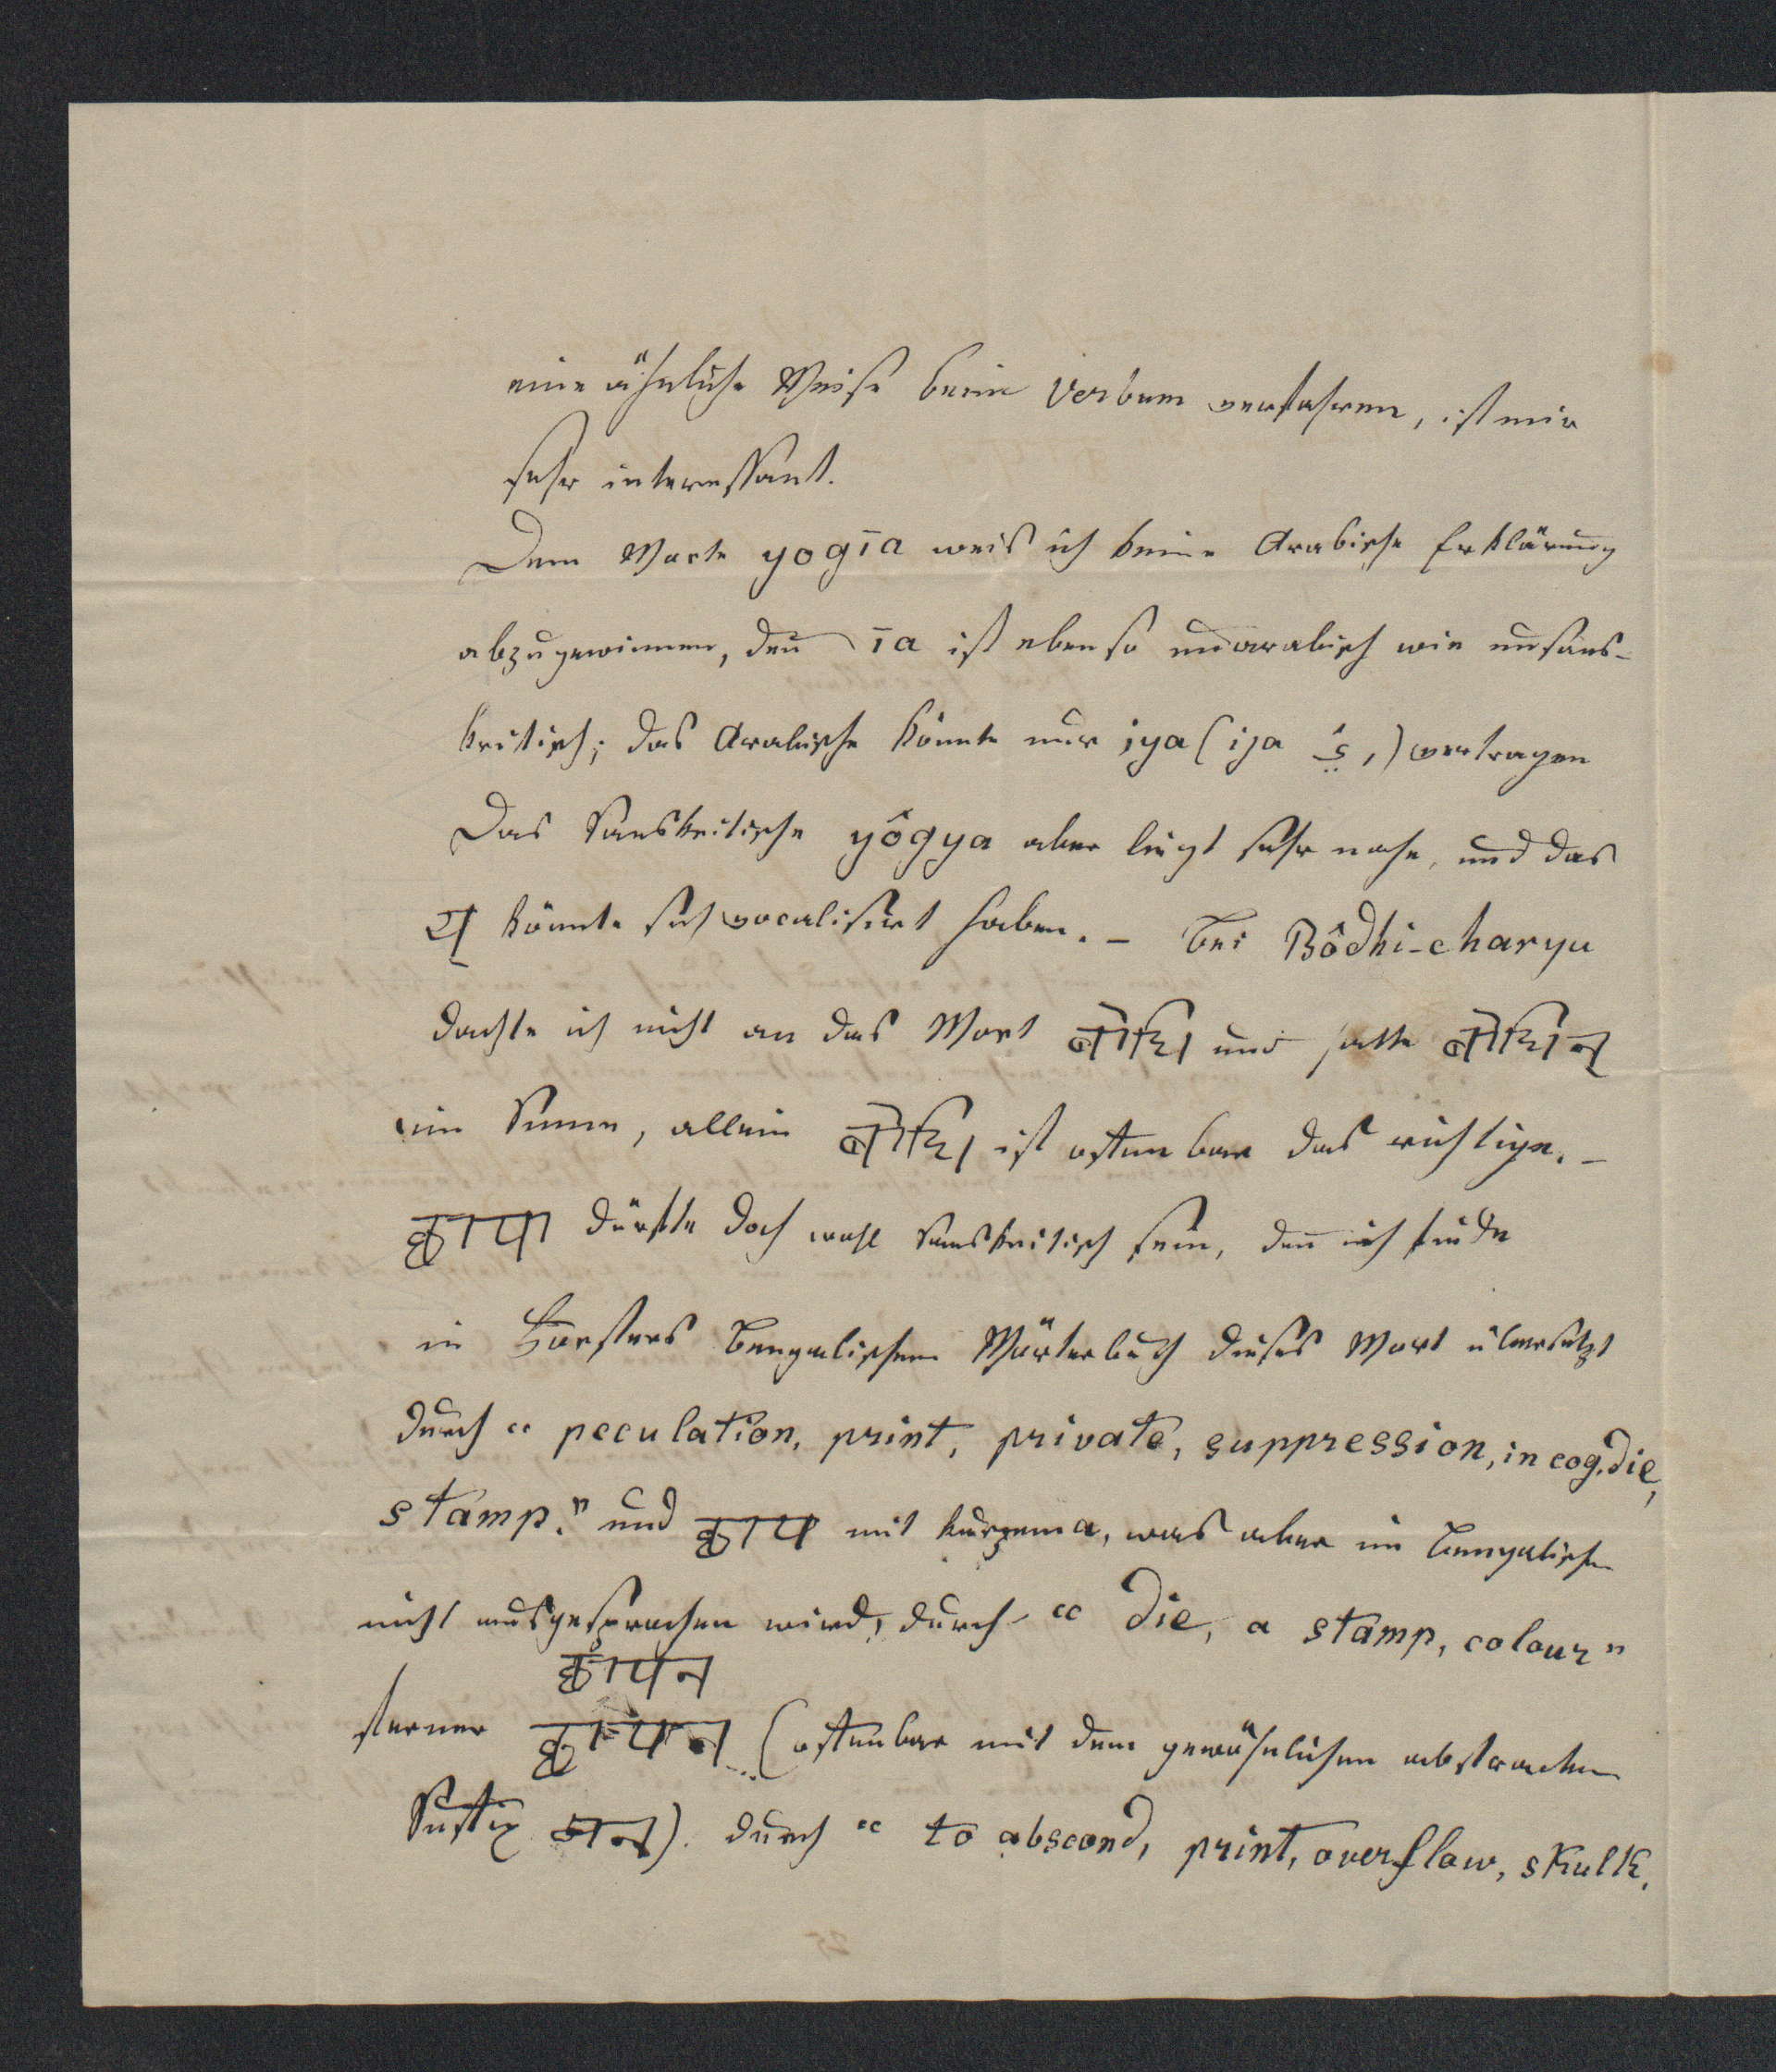 eine ähnliche Weise beim Verbum verfahren, ist mir
sehr interessant.
Dem Worte yogīa weis ich keine Arabische Erklärung
abzugewinnen, deñ īa ist eben so unarabisch wie unsans-
kritisch; das Arabische könnte nur iya (ija يَ,) vertragen
Das Sanskritische yôgya aber liegt sehr nahe, und das
य् könnte sich vocalisirt haben. – Bei Bôdhi-charyu
dachte ich nicht an das Wort बोधि und hatte बोधिन्
im Sinne, allein बोधि ist offenbar das richtige. –
छापा dürfte doch wohl sanskritisch sein, deñ ich finde
in Forsters Bengalischem Wörterbuch dieses Wort übersetzt
durch “ peculation, print, private, suppression, in cog. die,
stamp.” und छाप mit kurzem a, was aber im Bengalischen
nicht ausgesprochen wird, durch “ die, a stamp, colour”
छापन
ferner छापन (offenbar mit dem gewöhnlichen abstracten
Suffix अन). durch “ to abscond, print, overflow, skulk,
25